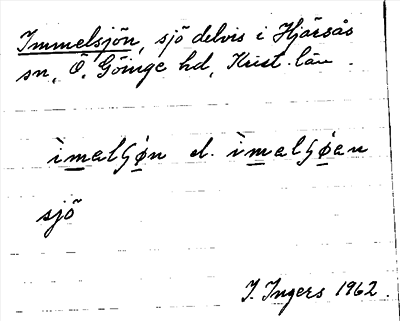 Immelsjön, sjö delvis i Hjärsås
sn, Ö. Göinge hd, Krist. län.
ìmelʃøn el. ìmelʃøen
sjö
I. Ingers 1962.